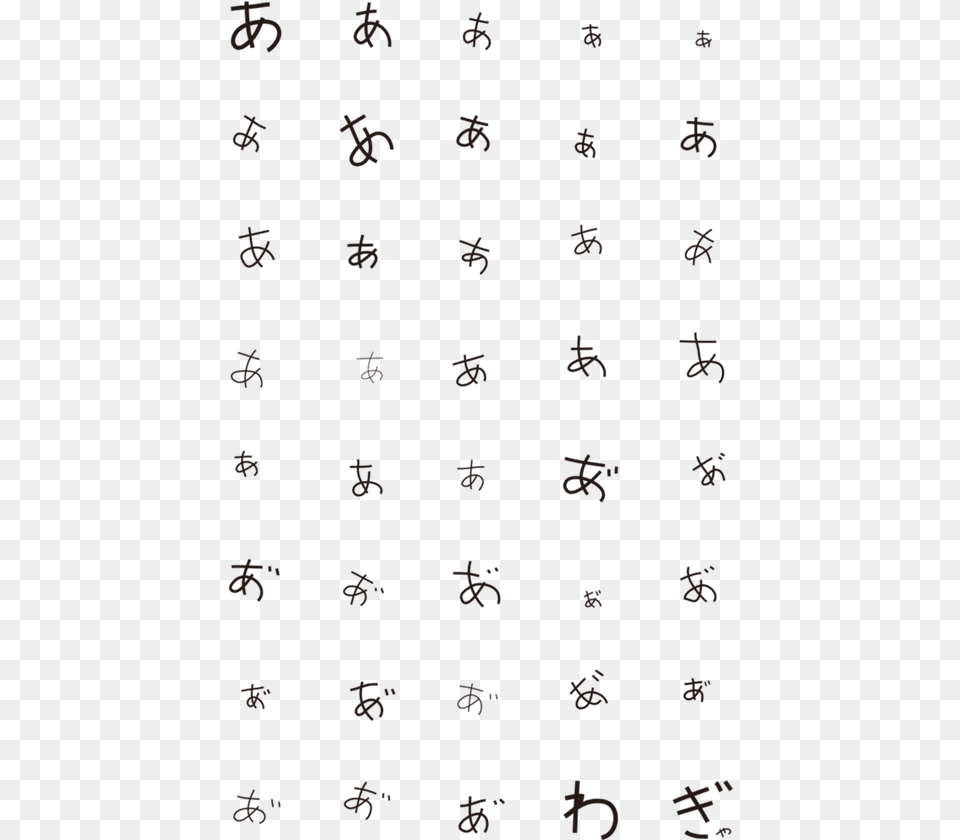 あ あ あ ぁ ぁ
あ あ あ ぁ あ
あ あ あ あ あ
あ あ あ あ あ
あ あ あ あ゛ あ゛
あ゛ あ゛ あ゛ あ゛ あ゛
あ゛ あ゛ あ゛ あ゛ あ゛
あ゛ あ゛ あ゛ わ ぎゃ